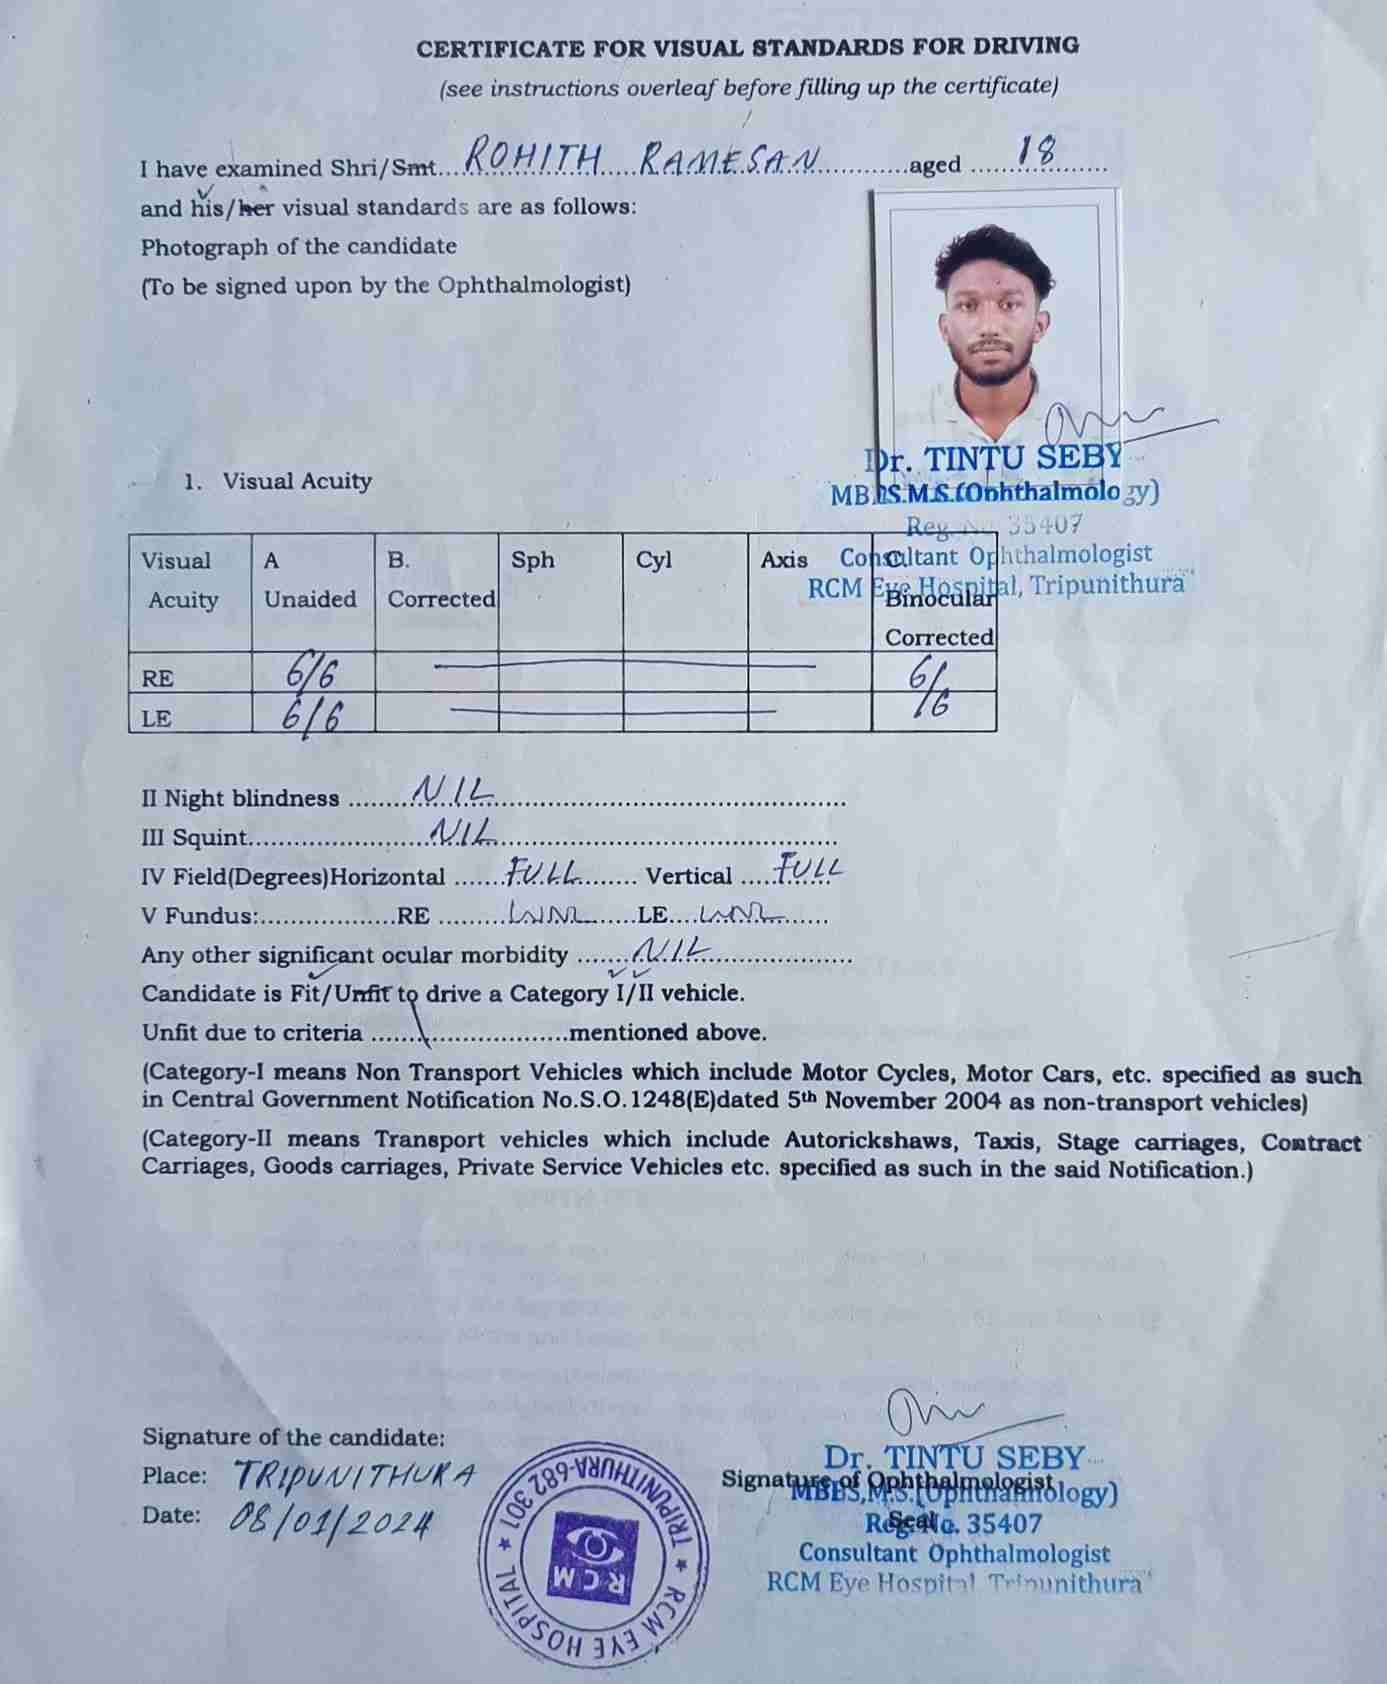 CERTIFICATE FOR VISUAL STANDARDS FOR DRIVING
(see instructions overleaf before filling up the certificate)
I have examined Shri/Smt....ROHITH RAMESAN............aged ....18..............
and his/her visual standards are as follows:
Photograph of the candidate
(To be signed upon by the Ophthalmologist)
Dr. TINTU SEBY
MBBS.M.S.(Ophthalmology)
Reg. No. 35407
Consultant Ophthalmologist
RCM Eye Hospital, Tripunithura
1. Visual Acuity
Visual Acuity A Unaided B. Corrected Sph Cyl Axis C Binocular Corrected
RE 6/6 6/6
LE 6/6
II Night blindness ........NIL..........................................
III Squint........................NIL..........................................
IV Field(Degrees)Horizontal .......FULL........ Vertical .....FULL
V Fundus:..................RE .........WNL......LE....WNL.......
Any other significant ocular morbidity .......NIL....................
Candidate is Fit/Unfit to drive a Category I/II vehicle.
Unfit due to criteria ..............................mentioned above.
(Category-I means Non Transport Vehicles which include Motor Cycles, Motor Cars, etc. specified as such
in Central Government Notification No.S.O.1248(E)dated 5th November 2004 as non-transport vehicles)
(Category-II means Transport vehicles which include Autorickshaws, Taxis, Stage carriages, Contract
Carriages, Goods carriages, Private Service Vehicles etc. specified as such in the said Notification.)
Signature of the candidate:
Place: TRIPUNITHURA
Date: 08/01/2024
RCM EYE HOSPITAL ★ TRIPUNITHURA-682 301 ★
RCM
Dr. TINTU SEBY
Signature of Ophthalmologist
MBBS,M.S.(Ophthalmology)
Seal
Reg. No. 35407
Consultant Ophthalmologist
RCM Eye Hospital Tripunithura